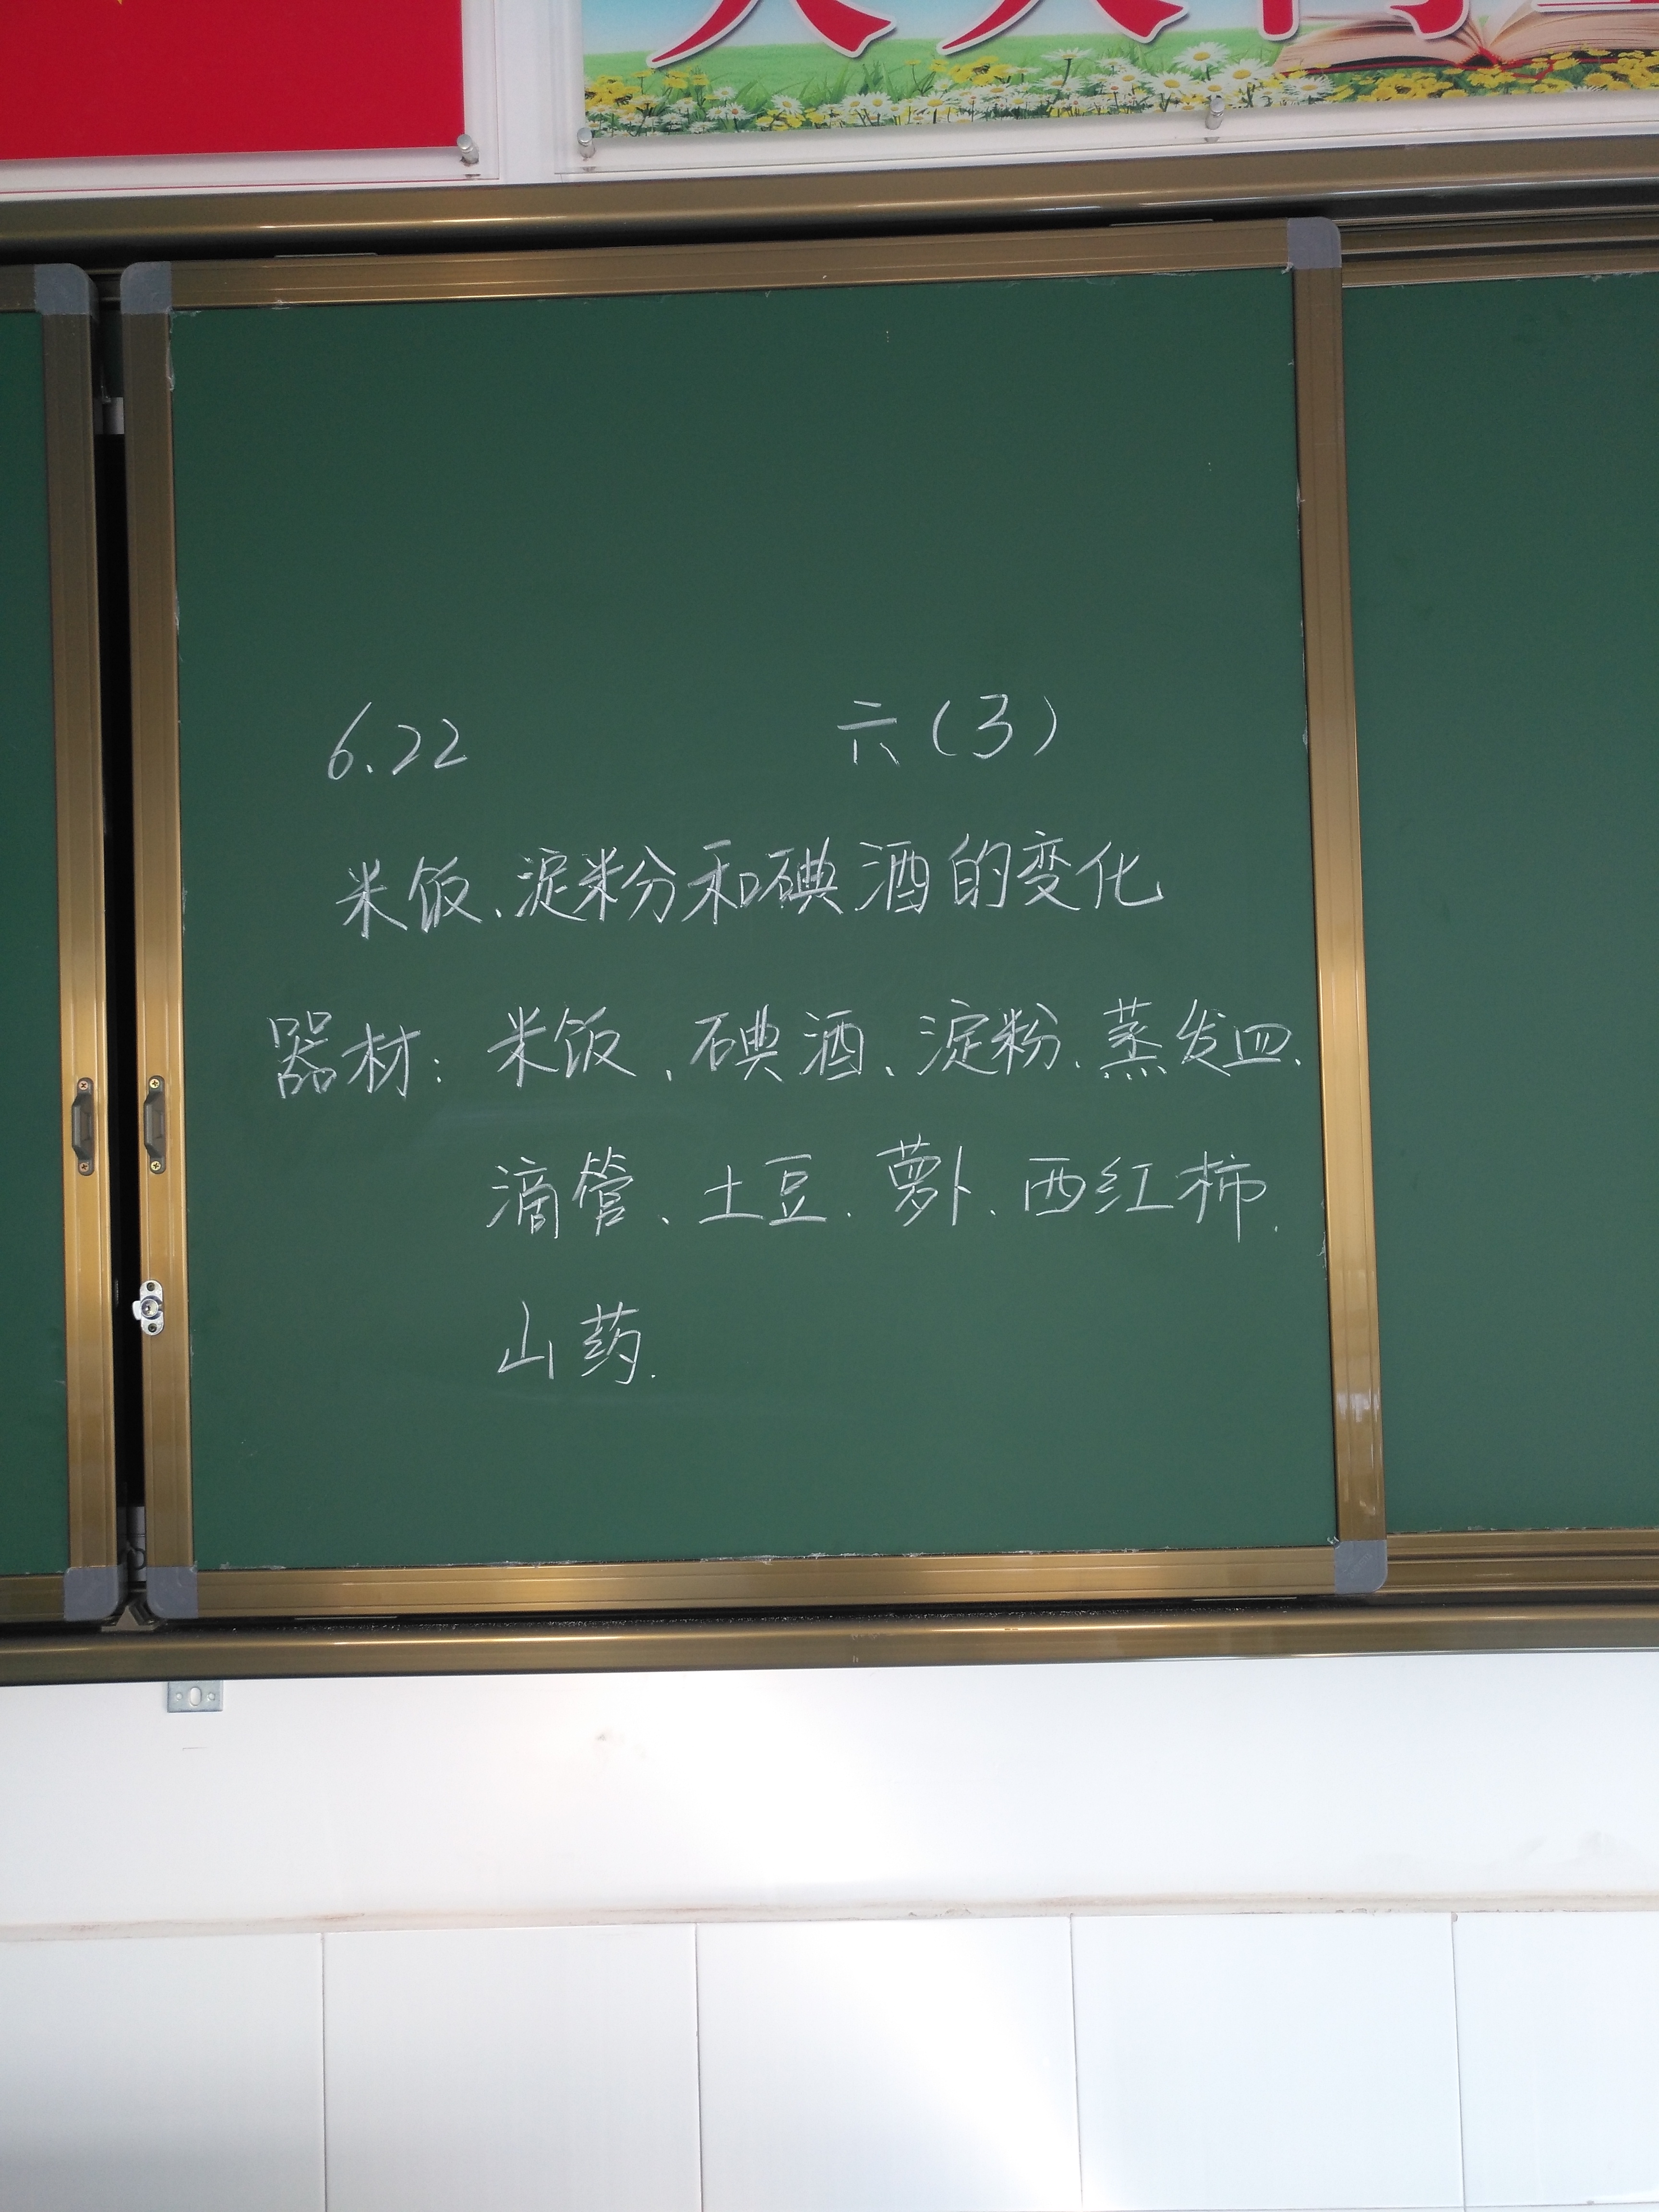 6.22 六(3)
米饭、淀粉分和碘酒的变化
器材：米饭、碘酒、淀粉、蒸发皿、
滴管、土豆、萝卜、西红柿、
山药.